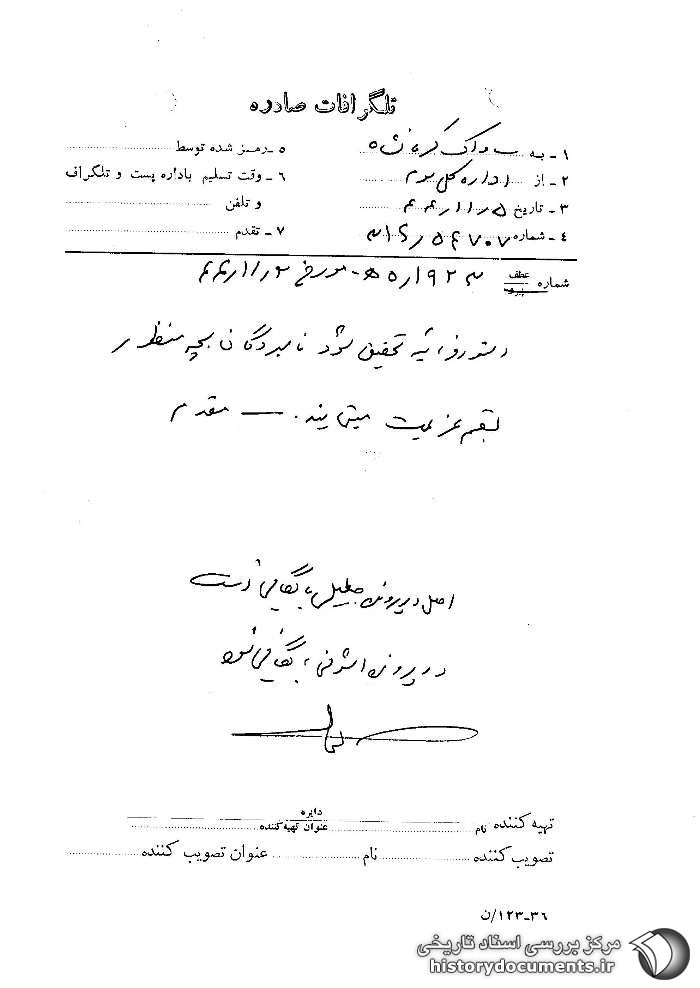 تلگرافات صادره
۱ - به ساواک کرمانشاه
۲ - از اداره کل سوم
۳ - تاریخ
۴ - شماره
۵ - رمز شده توسط
۶ - وقت تسلیم باداره پست و تلگراف
و تلفن
۷ - تقدم
شماره عطف پیرو ۵۱۹۲۳ ر ۵ - مورخ
دستور فرمائید تحقیق شود نامبردگان بچه منظور
بقم عزیمت مینمایند. — مقدم
اصل در پرونده جلیلی بایگانی است
در پرونده اشرفی بایگانی شود
تهیه کننده نام دایره
عنوان تهیه کننده
تصویب کننده نام عنوان تصویب کننده
۳۶-۱۲۳/ن
مرکز بررسی اسناد تاریخی
historydocuments.ir